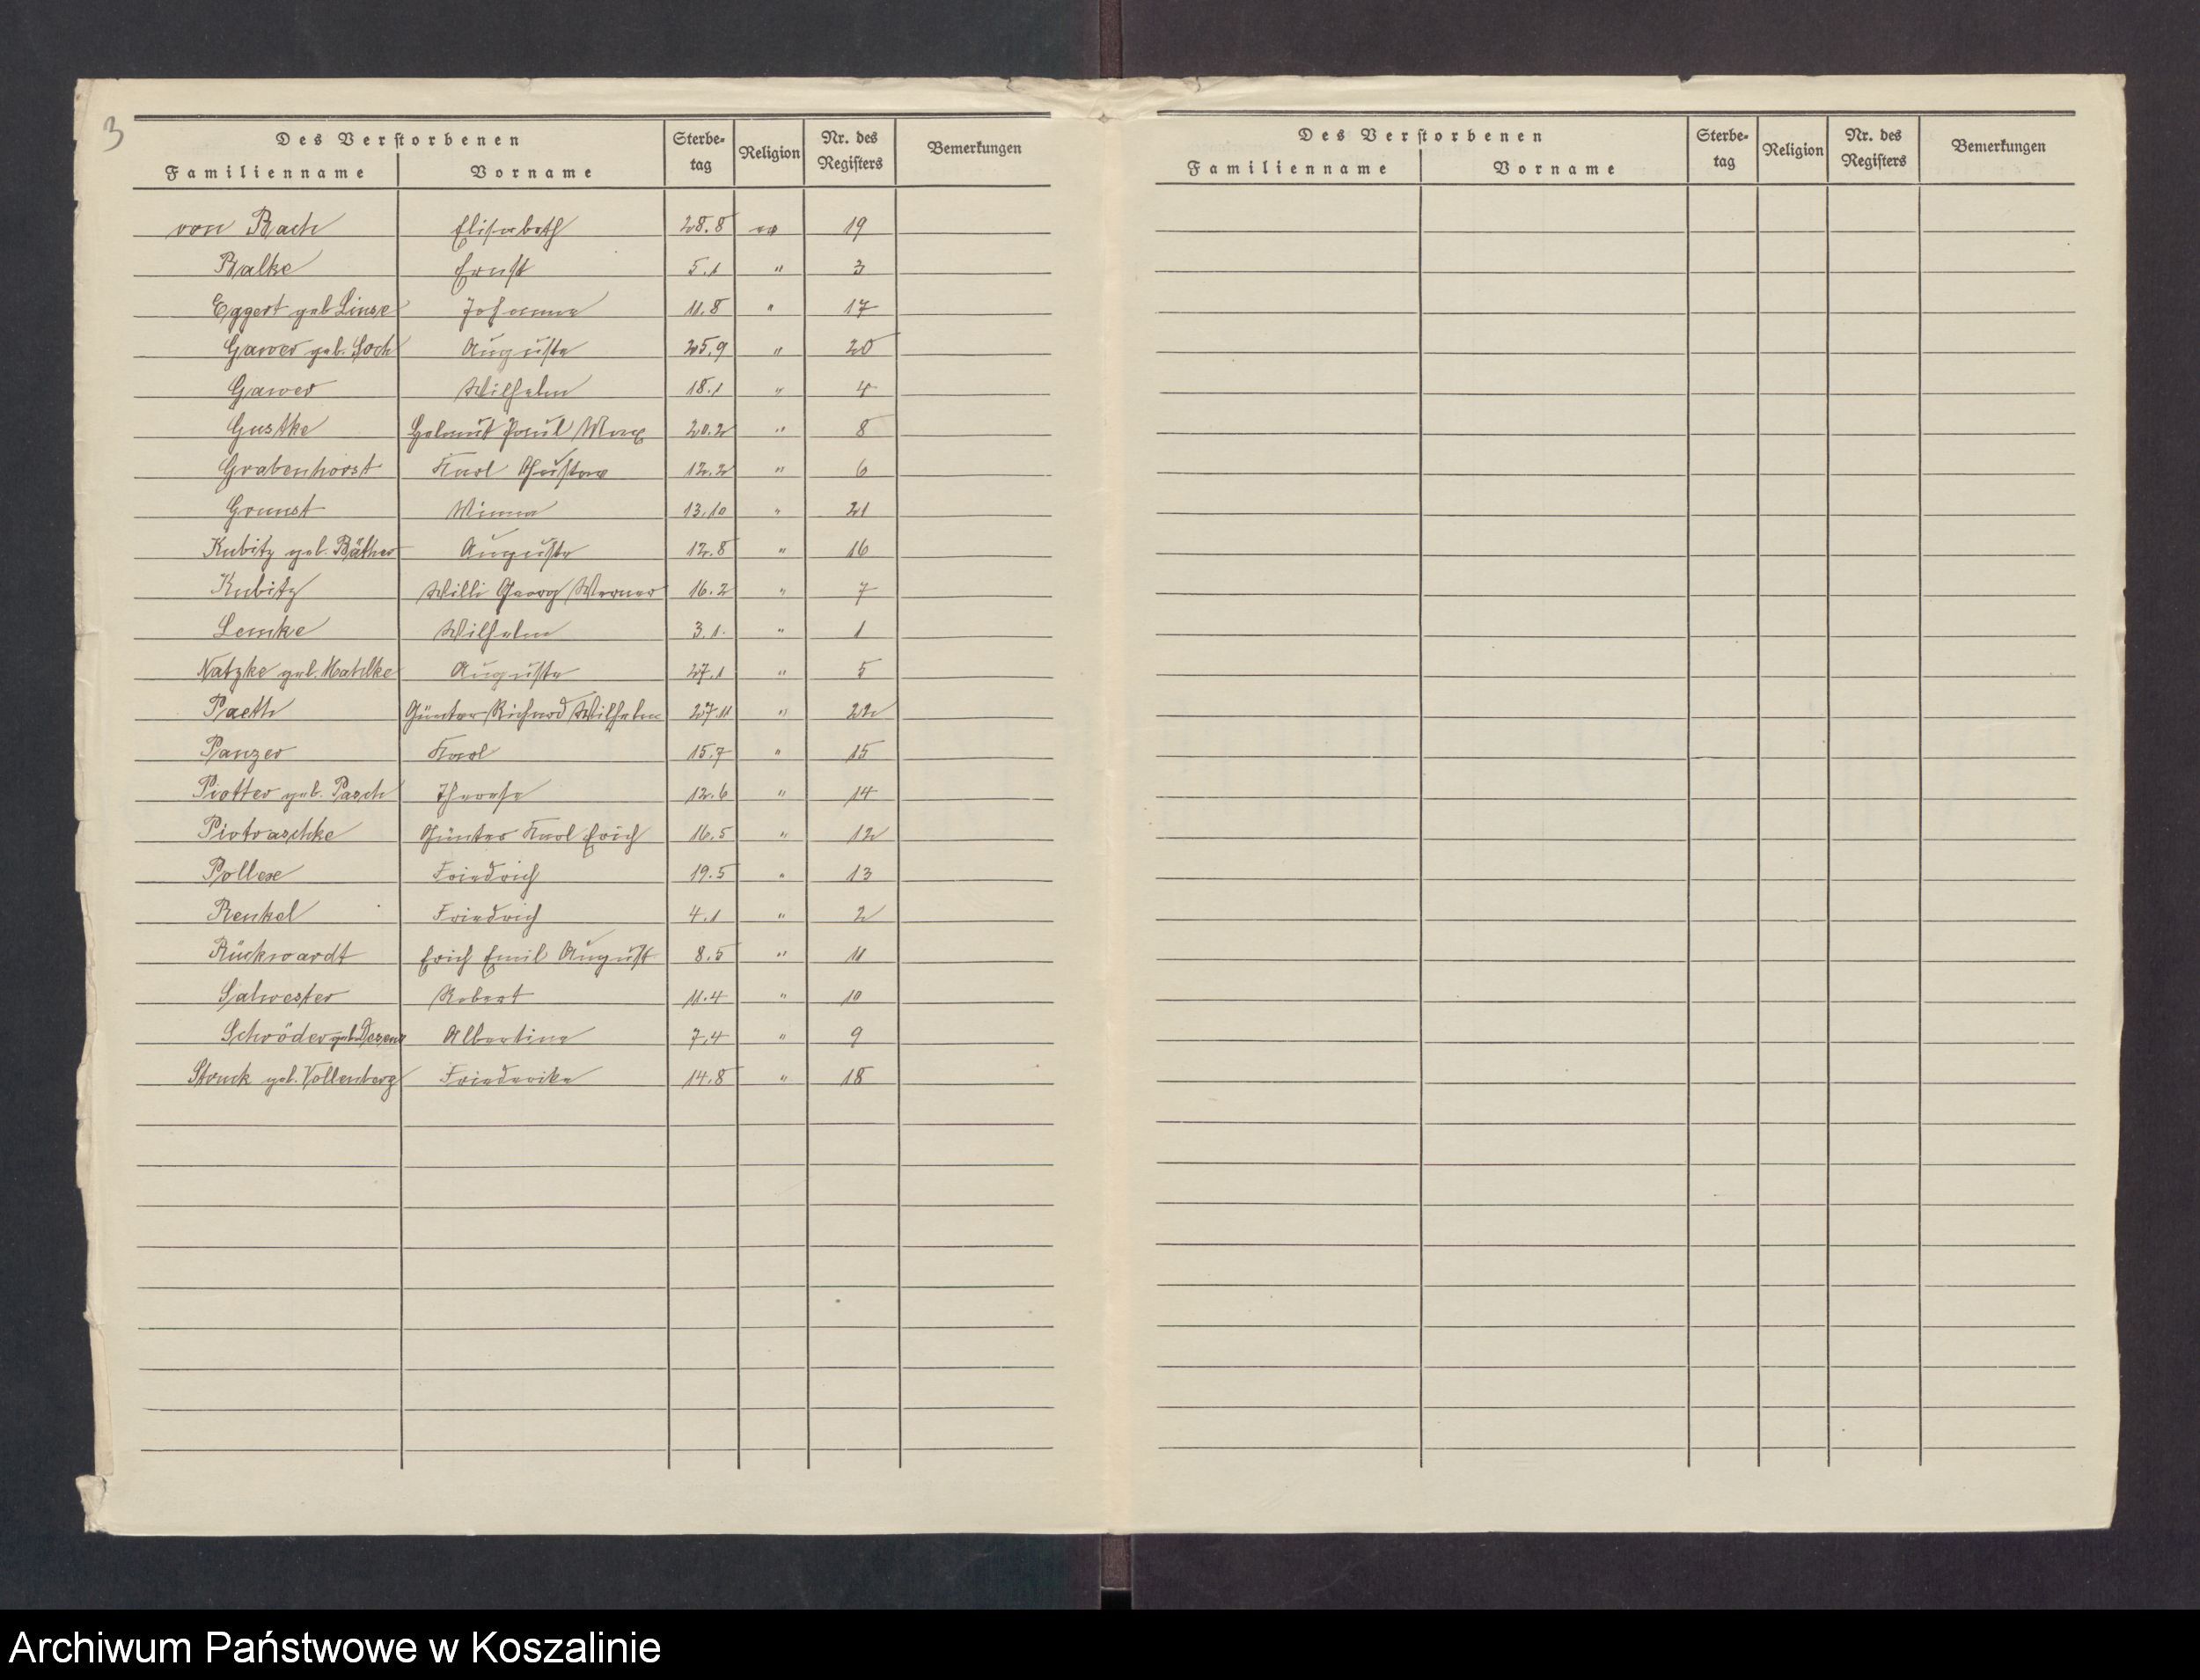 3
Des Verstorbenen Sterbe-tag Religion Nr. des Registers Bemerkungen
Familienname Vorname
Des Verstorbenen Sterbe-tag Religion Nr. des Registers Bemerkungen
Familienname Vorname
von Bach Elisabeth 28.8 ev 19
Balke Ernst 5.1 " 3
Eggert geb Linse Johanna 11.8 " 17
Gawer geb. Auguste 25.9 " 20
Gawer Wilhelm 18.1 " 4
Gustke Helmut Paul Max 20.2 " 8
Grabenhorst Karl Gustav 12.2 " 6
Grunst Minna 13.10 " 21
Kubitz geb. Bäther Auguste 12.8 " 16
Kubitz Willi Georg Werner 16.2 " 7
Lemke Wilhelm 3.1. " 1
Natzke geb. Mahlke Auguste 27.1 " 5
Paeth Günter Richard Wilhelm 27.11 " 22
Panzer Karl 15.7 " 15
Piotter geb. Pasch Therese 12.6 " 14
Piotraschke Günter Karl Erich 16.5 " 12
Pollex Friedrich 19.5 " 13
Renkel Friedrich 4.1 " 2
Rückwardt Erich Emil August 8.5 " 11
Salwester Robert 11.4 " 10
Schröder geb. Albertine 7.4 " 9
Struck geb. Vollenberg Friederike 14.8 " 18
Archiwum Państwowe w Koszalinie